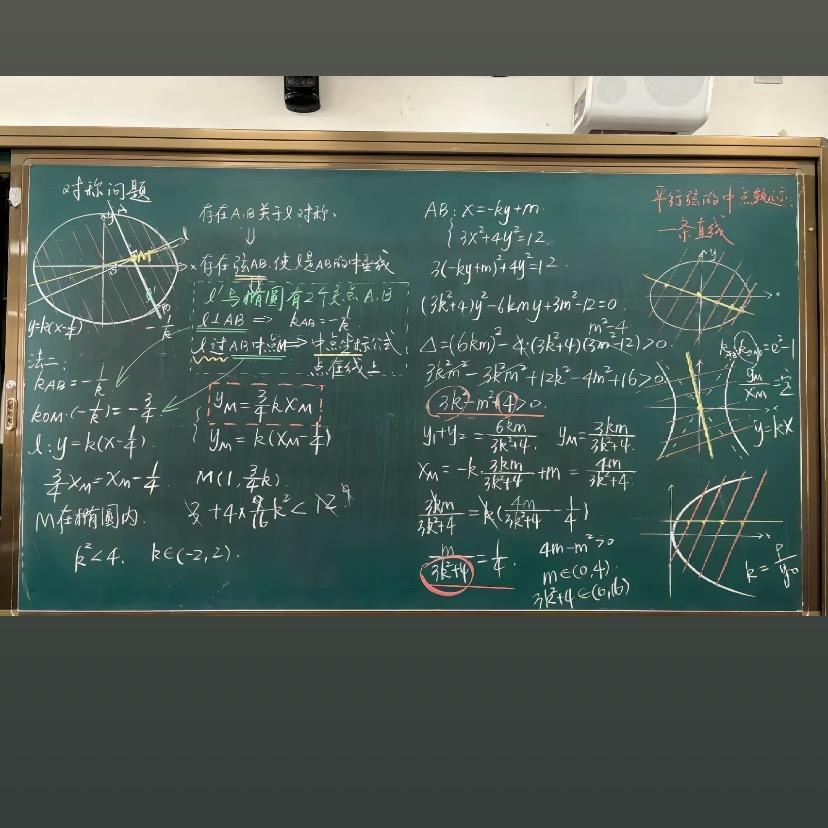 对称问题
y=k(x-1/4)
-1/k
法二:
k_AB=-1/k
k_OM·(-1/k)=-3/4
l:y=k(x-1/4).
3/4 x_M=x_M-1/4
M在椭圆内.
k²<4. k∈(-2,2).
存在A,B关于l对称.
⇓
存在弦AB.使l是AB的中垂线
l'与椭圆有2个交点A,B
l⊥AB ⇒ k_AB=-1/k
l过AB中点M⇒中点坐标公式
点在线上
y_M=3/4 k x_M
y_M=k(x_M-1/4)
M(1,3/4 k).
3+4×9/16 k²<12
AB:x=-ky+m.
3x²+4y²=12.
3(-ky+m)²+4y²=12.
(3k²+4)y²-6kmy+3m²-12=0.
m²-4
Δ=(6km)²-4·(3k²+4)(3m²-12)>0.
3k²m²-3k²m²+12k²-4m²+16>0.
3k²-m²+4>0.
y₁+y₂=6km/3k²+4. y_M=3km/3k²+4.
x_M=-k·3km/3k²+4+m=4m/3k²+4.
3km/3k²+4=k(4m/3k²+4-1/4)
m/3k²+4=1/4.
4m-m²>0
m∈(0,4).
3k²+4∈(0,16)
平行弦的中点轨迹:
一条直线
y
x
=e²-1
y_M/x_M
y=kx
x
k=p/y₀